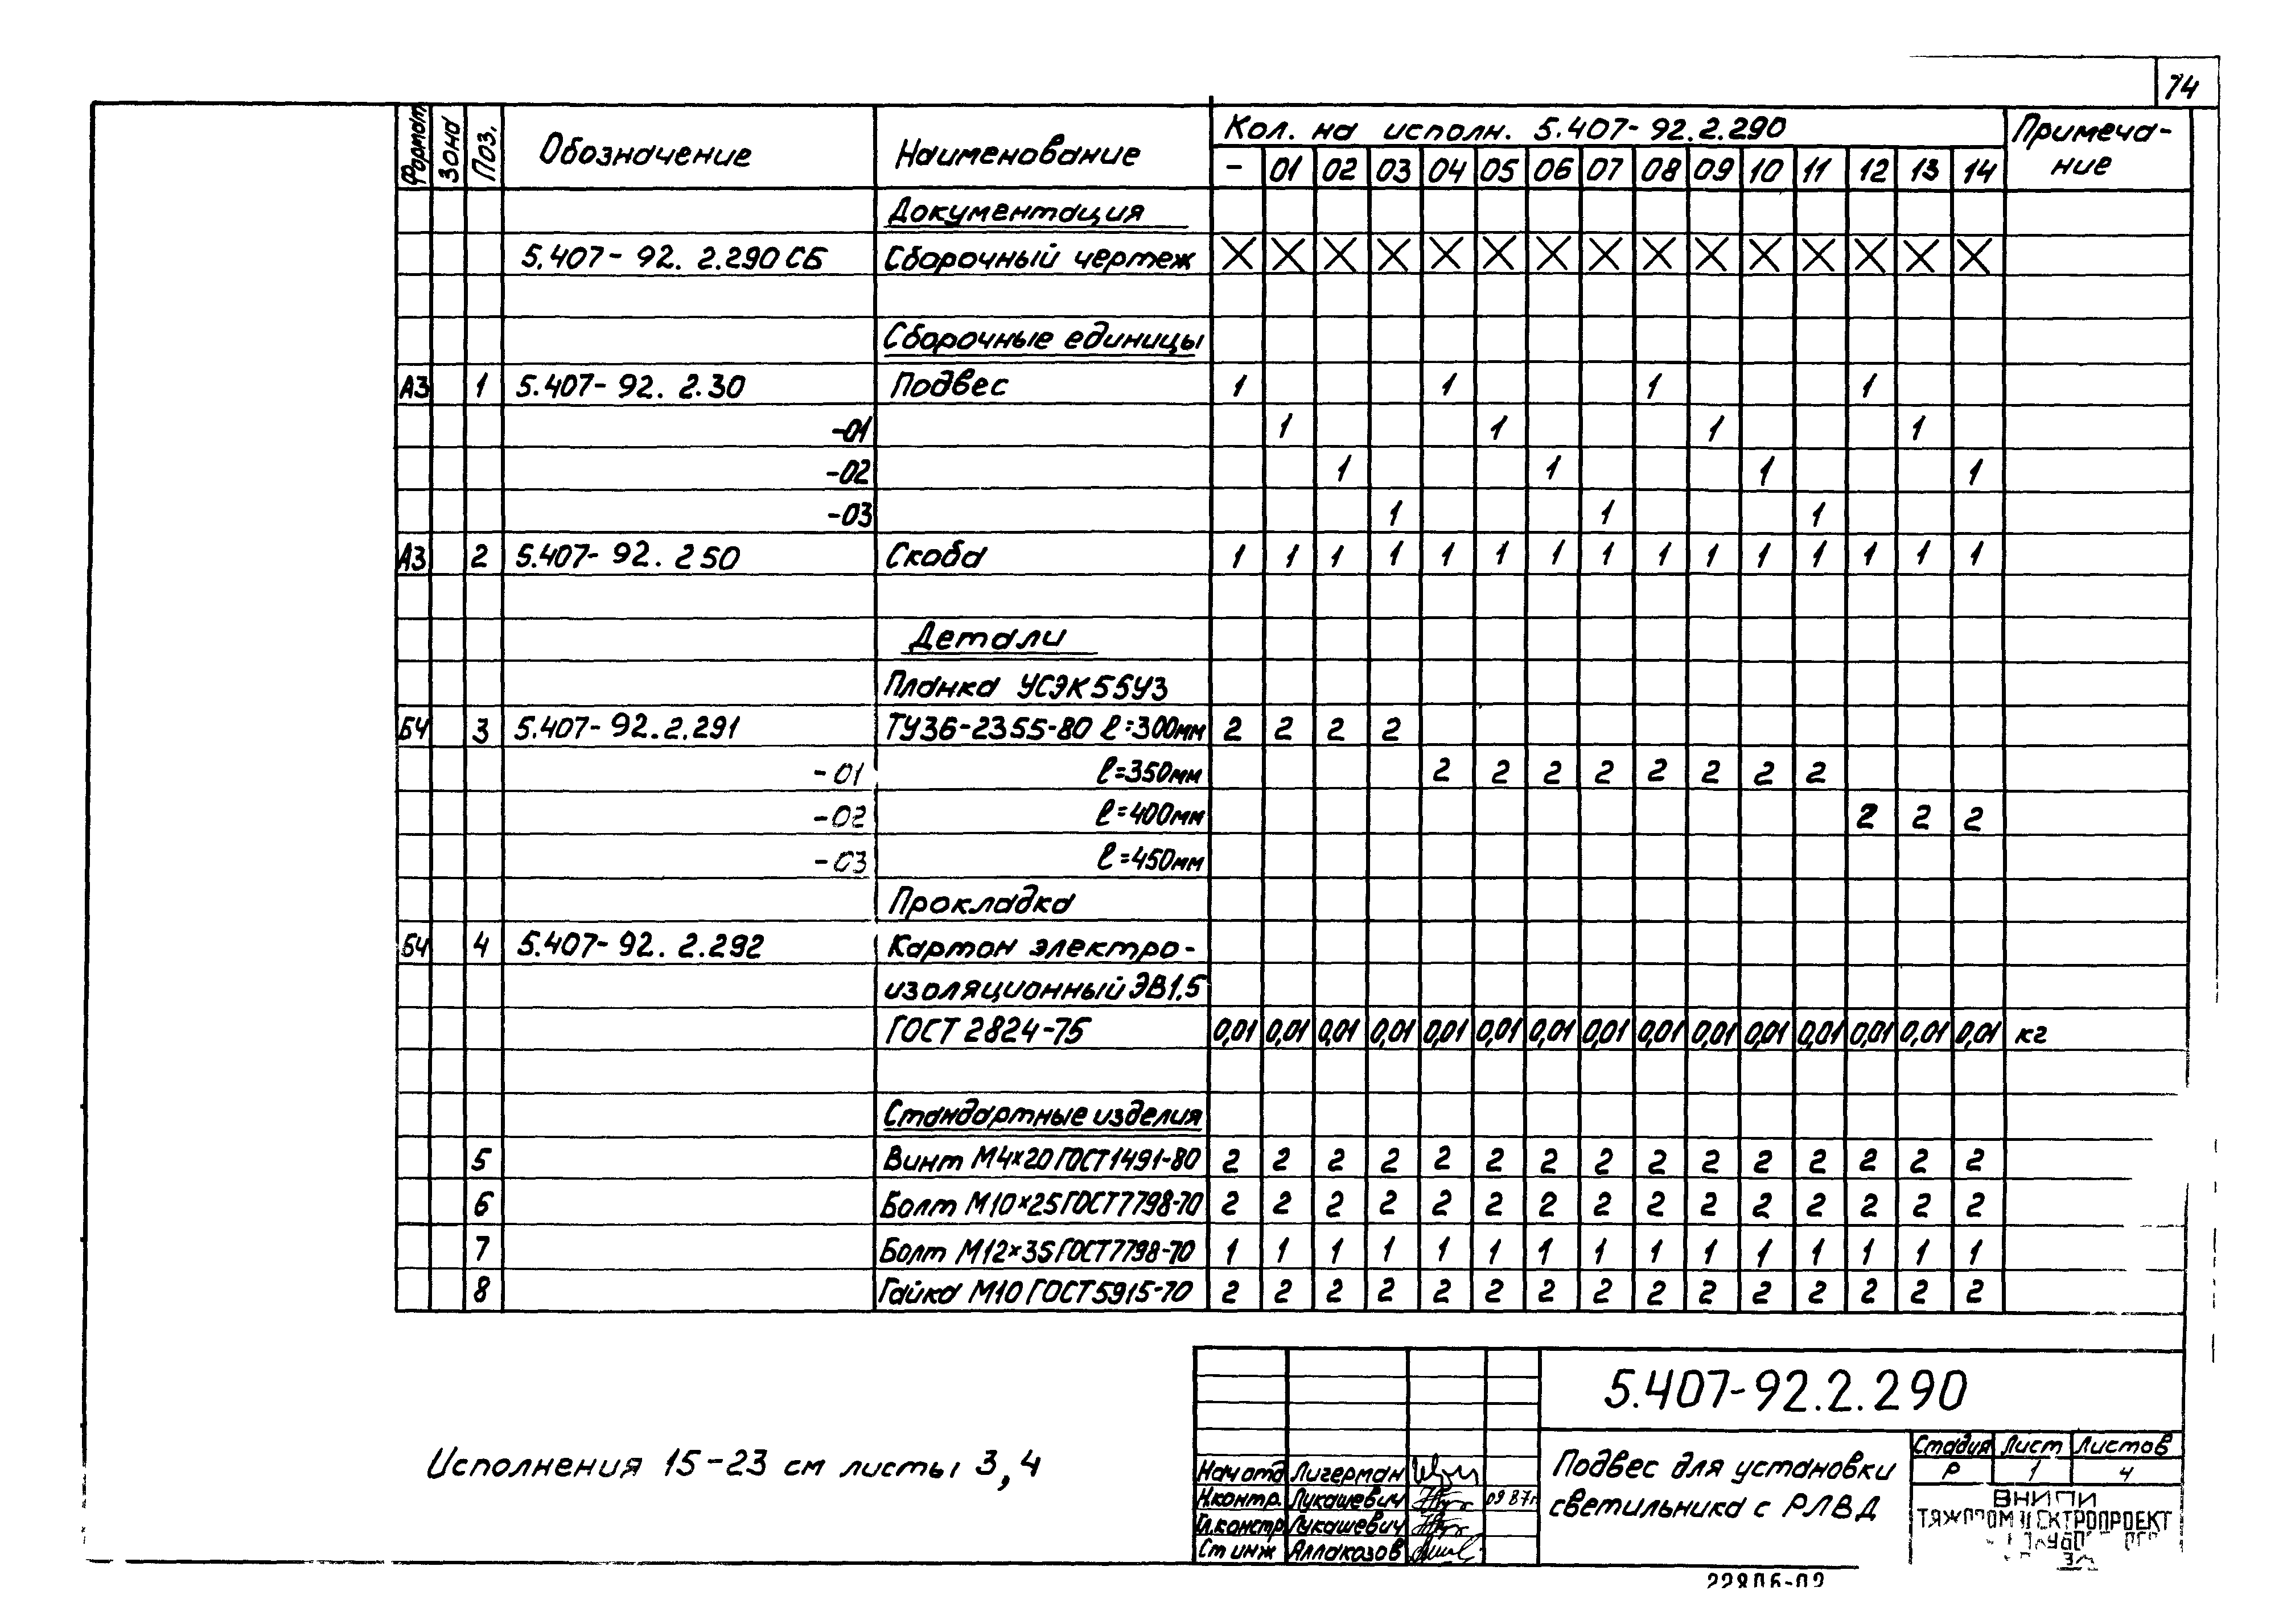 74
Формат Зона Поз. Обозначение Наименование Кол. на исполн. 5.407-92.2.290 Примеча-
ние
- 01 02 03 04 05 06 07 08 09 10 11 12 13 14
Документация
5.407-92. 2.290 СБ Сборочный чертеж X X X X X X X X X X X X X X X
Сборочные единицы
А3 1 5.407-92. 2.30 Подвес 1 1 1 1
-01 1 1 1 1
-02 1 1 1 1
-03 1 1 1
А3 2 5.407-92. 2 50 Скоба 1 1 1 1 1 1 1 1 1 1 1 1 1 1 1
Детали
Планка УСЭК55У3
БЧ 3 5.407-92.2.291 ТУ36-2355-80 ℓ=300мм 2 2 2 2
-01 ℓ=350мм 2 2 2 2 2 2 2 2
-02 ℓ=400мм 2 2 2
-03 ℓ=450мм
Прокладка
БЧ 4 5.407-92. 2.292 Картон электро-
изоляционный ЭВ1,5
ГОСТ 2824-75 0,01 0,01 0,01 0,01 0,01 0,01 0,01 0,01 0,01 0,01 0,01 0,01 0,01 0,01 0,01 кг
Стандартные изделия
5 Винт М4×20 ГОСТ1491-80 2 2 2 2 2 2 2 2 2 2 2 2 2 2 2
6 Болт М10×25 ГОСТ7798-70 2 2 2 2 2 2 2 2 2 2 2 2 2 2 2
7 Болт М12×35 ГОСТ7798-70 1 1 1 1 1 1 1 1 1 1 1 1 1 1 1
8 Гайка М10 ГОСТ5915-70 2 2 2 2 2 2 2 2 2 2 2 2 2 2 2
Исполнения 15-23 см листы 3,4
5.407-92.2.290
Нач отд Лигерман
Н.контр. Лукашевич 09 87г
Гл.констр Лукашевич
Ст инж Аллаказов
Подвес для установки
светильника с РЛВД
Стадия Лист Листов
Р 1 4
ВНИПИ
22806-02